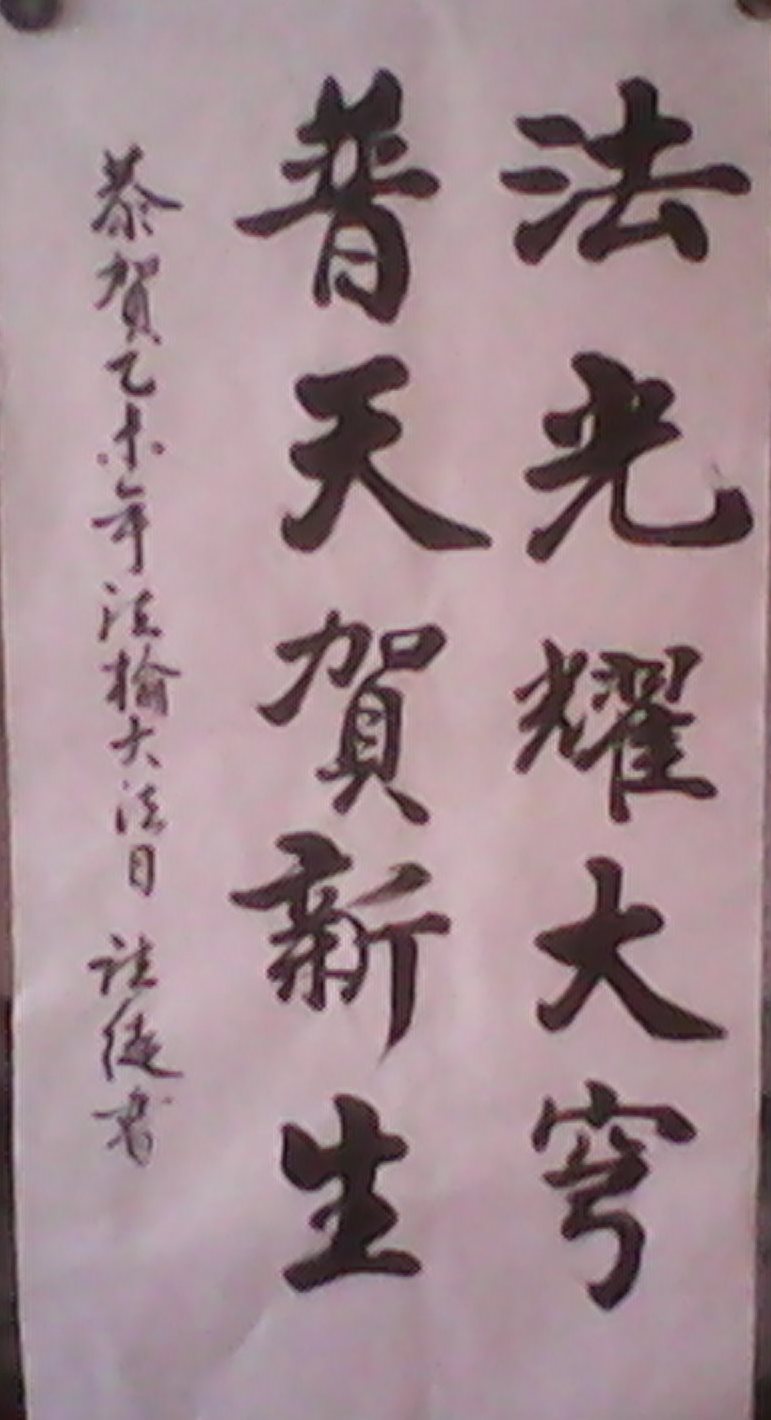 法光耀大穹
普天賀新生
恭賀乙未年法輪大法日 法徒书